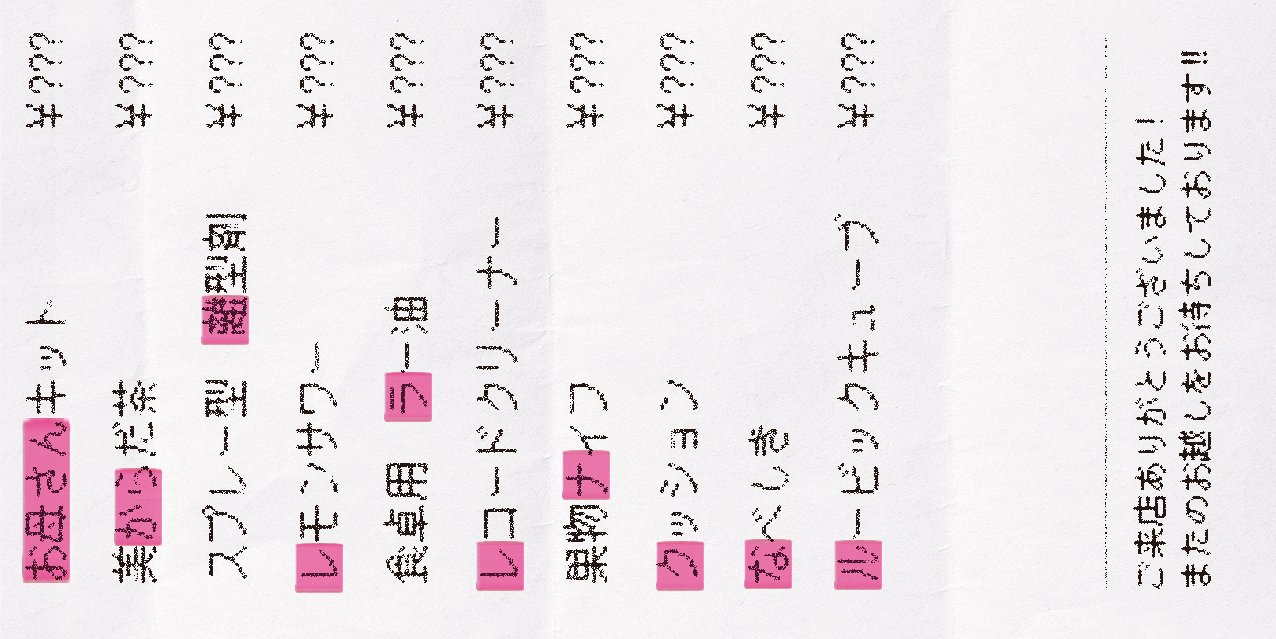 お母さんキット ¥???
美からだ茶 ¥???
スプレー型 離型剤 ¥???
レモンサワー ¥???
食卓用 ラー油 ¥???
レコードクリーナー ¥???
果物ナイフ ¥???
クッション ¥???
なべしき ¥???
ルービックキューブ ¥???
ご来店ありがとうございました!
またのお越しをお待ちしております!!